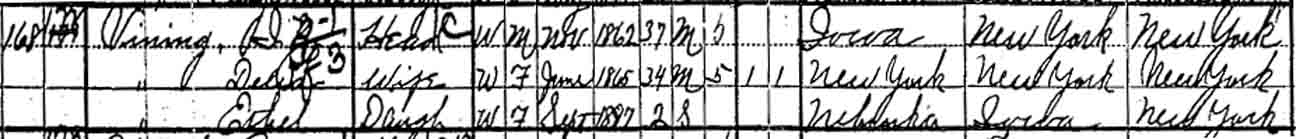 168 Vining, Head C W M Nov 1862 37 M 5 Iowa New York New York
" Wife W F June 1865 34 M 5 1 1 New York New York New York
Ethel Daugh W F Sept 1897 2 S Nebraska Iowa New York